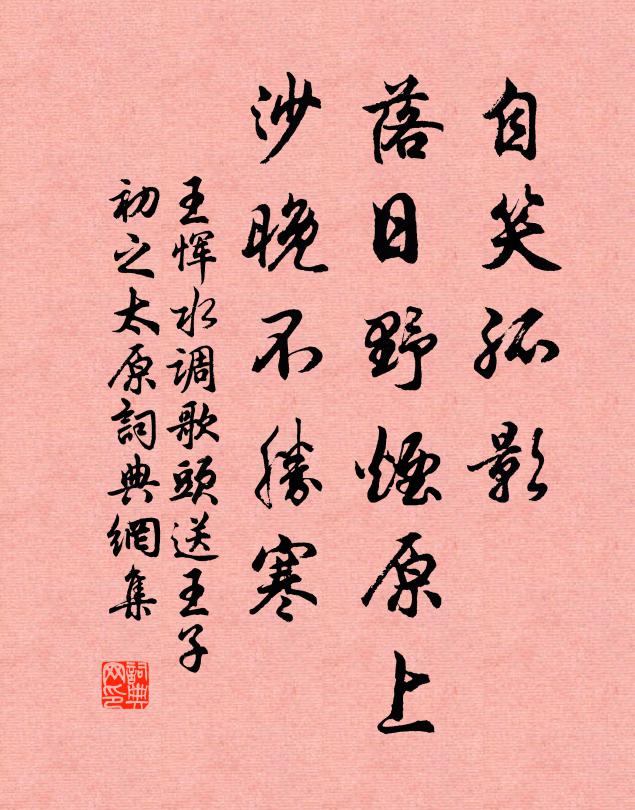 自笑孤影
落日野煙原上
沙晚不勝寒
王惲水調歌頭送王子
初之太原詞典網集
詞典網印